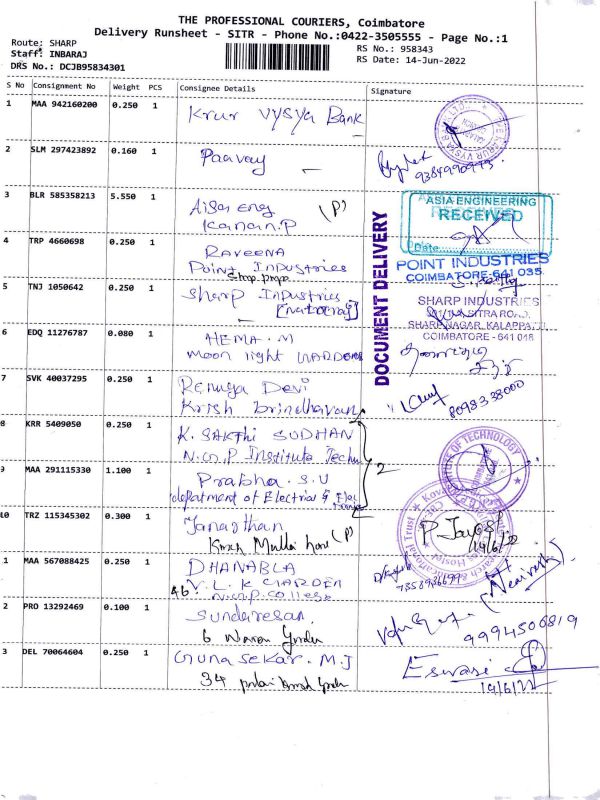 THE PROFESSIONAL COURIERS, Coimbatore
Delivery Runsheet - SITR - Phone No.:0422-3505555 - Page No.:1
Route: SHARP
Staff: INBARAJ
DRS No.: DCJB95834301
RS No.: 958343
RS Date: 14-Jun-2022
S No Consignment No Weight PCS Consignee Details Signature
1 MAA 942160200 0.250 1 Krur Vysya Bank
2 SLM 297423892 0.160 1 Paavay
9384990993
3 BLR 585358213 5.550 1 Aisa eng (P)
Kanan.P
ASIA ENGINEERING
RECEIVED
Date
DOCUMENT DELIVERY
4 TRP 4660698 0.250 1 RAVEENA
Point Industries
POINT INDUSTRIES
COIMBATORE-641 035.
5 TNJ 1050642 0.250 1 Sharp Industries
SHARP INDUSTRIES
SITRA ROAD,
SHARP NAGAR, KALAPPATTI
COIMBATORE - 641 018
6 EDQ 11276787 0.080 1 HEMA.M
Moon light
7 SVK 40037295 0.250 1 Renuga Devi
Krish brindhavan
8098338000
8 KRR 5409050 0.250 1 K. SAKTHI SUDHAN
N.G.P Institute Techn
2
TECHNOLOGY
9 MAA 291115330 1.100 1 Prabha.S.U
department of Electrical &
10 TRZ 115345302 0.300 1 Janarthan
Krish Mullai (P)
14/6/22
1 MAA 567088425 0.250 1 DHANABLA
46. V.L.K GARDEN
N.G.P. College
2 PRO 13292469 0.100 1 Sundaresan
6
9994506819
3 DEL 70064604 0.250 1 Guna Sekar. M.J
34
Eswari
14/6/22